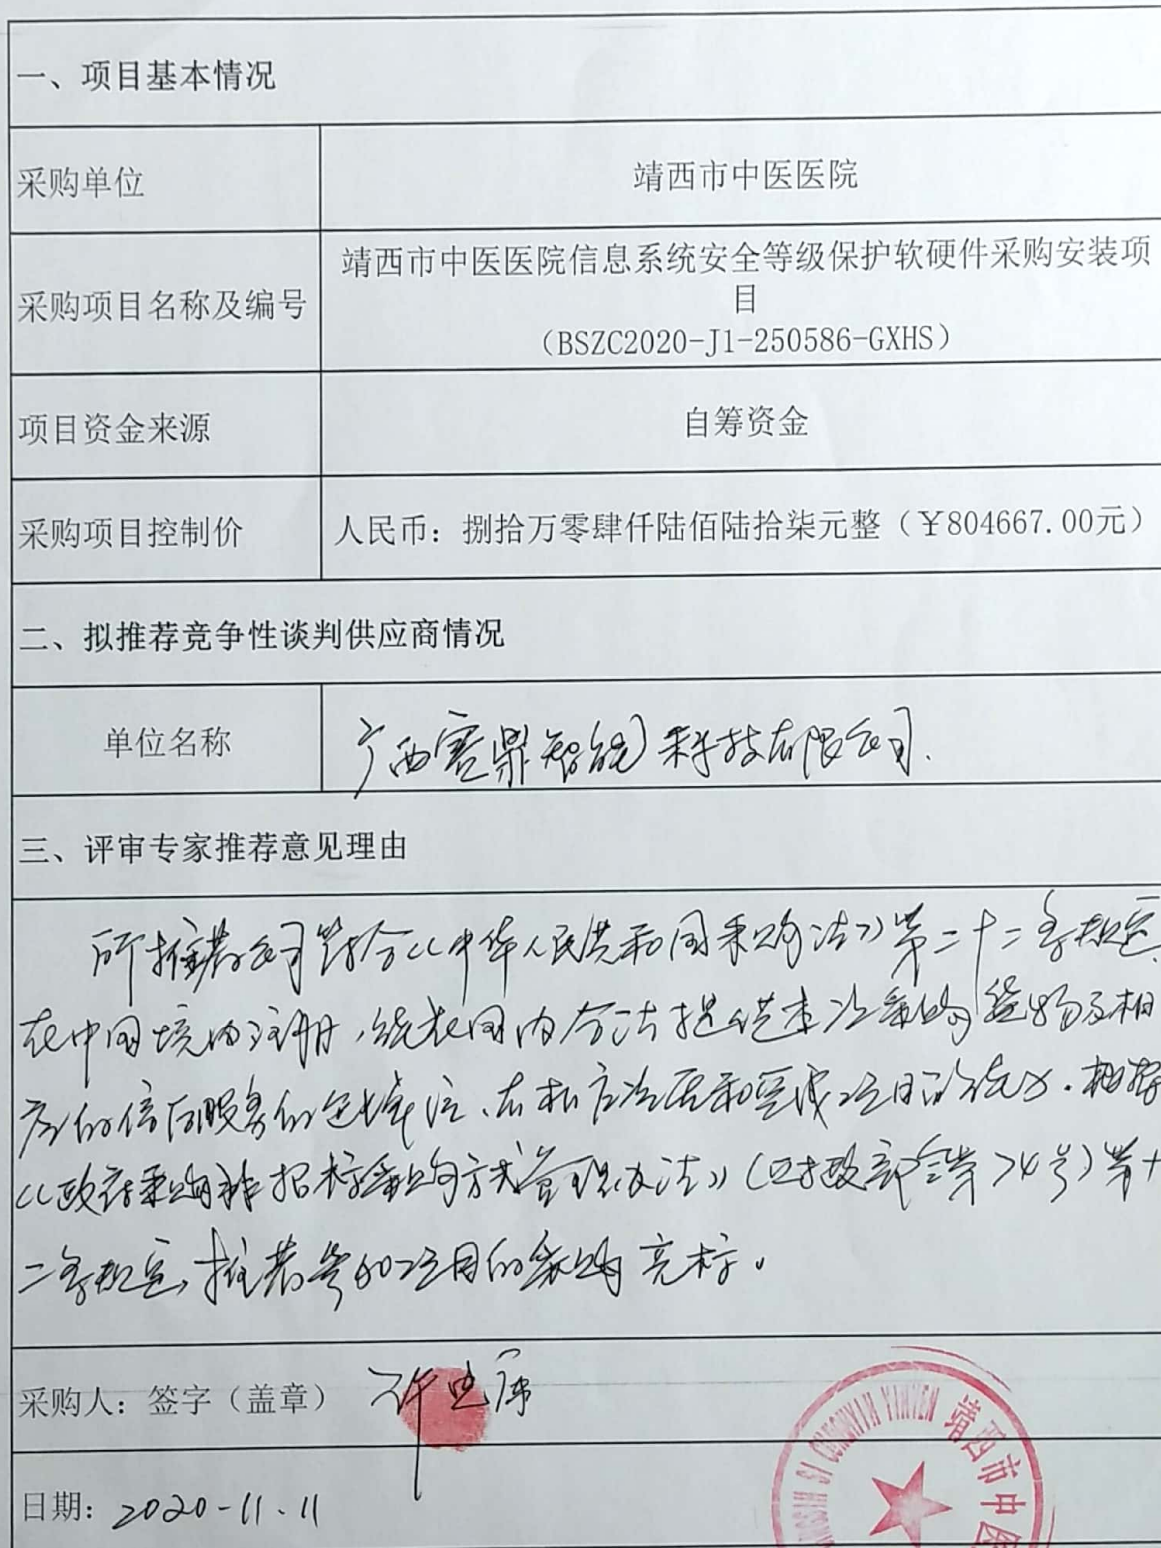 一、项目基本情况
采购单位
靖西市中医医院
采购项目名称及编号
靖西市中医医院信息系统安全等级保护软硬件采购安装项
目
（BSZC2020-J1-250586-GXHS）
项目资金来源
自筹资金
采购项目控制价
人民币：捌拾万零肆仟陆佰陆拾柒元整（￥804667.00元）
二、拟推荐竞争性谈判供应商情况
单位名称
广西赛鼎智能科技有限公司.
三、评审专家推荐意见理由
所推荐公司符合《中华人民共和国采购法》第二十二条规定
在中国境内注册,能在国内合法提供本次采购货物及相
应的售后服务的
《政府采购非招标采购方式管理办法》(财政部令第74号)第十
二条规定,推荐参加项目的采购竞标。
采购人：签字（盖章）
许
日期：2020-11.11
JINGXI SI ZHONGYI YIYUAN 靖西市中医